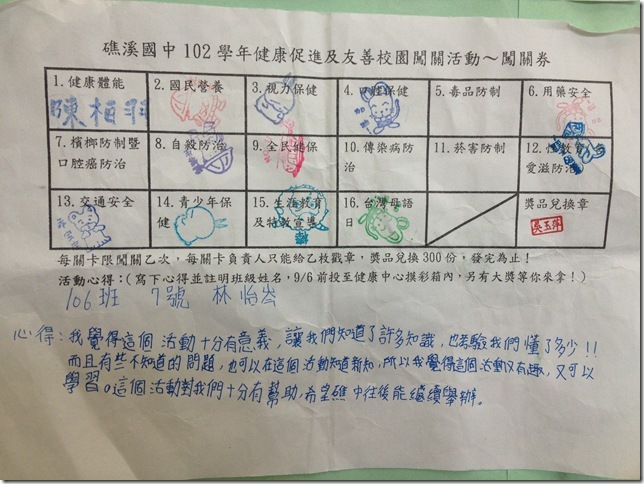 礁溪國中 102 學年健康促進及友善校園闖關活動～闖關券
1.健康體能
2.國民營養
3.視力保健
4.口腔保健
5.毒品防制
6.用藥安全
7.檳榔防制暨
口腔癌防治
8.自殺防治
9.全民健保
10.傳染病防
治
11.菸害防制
12.性教育
愛滋防治
13.交通安全
14.青少年保
健
15.生涯教育
及特教宣導
16.台灣母語
日
獎品兌換章
每關卡限闖關乙次，每關卡負責人只能給乙枚戳章，獎品兌換 300 份，發完為止！
活動心得：(寫下心得並註明班級姓名，9/6 前投至健康中心摸彩箱內，另有大獎等你來拿！)
106班 7號 林怡岑
心得：我覺得這個活動十分有意義，讓我們知道了許多知識，也考驗我們懂了多少!!
而且有些不知道的問題，也可以在這個活動知道新知，所以我覺得這個活動又有趣，又可以
學習。這個活動對我們十分有幫助，希望礁中往後能繼續舉辦。